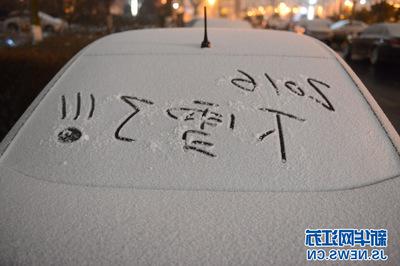 2016
下雪了!!!
新华网江苏
JS.NEWS.CN